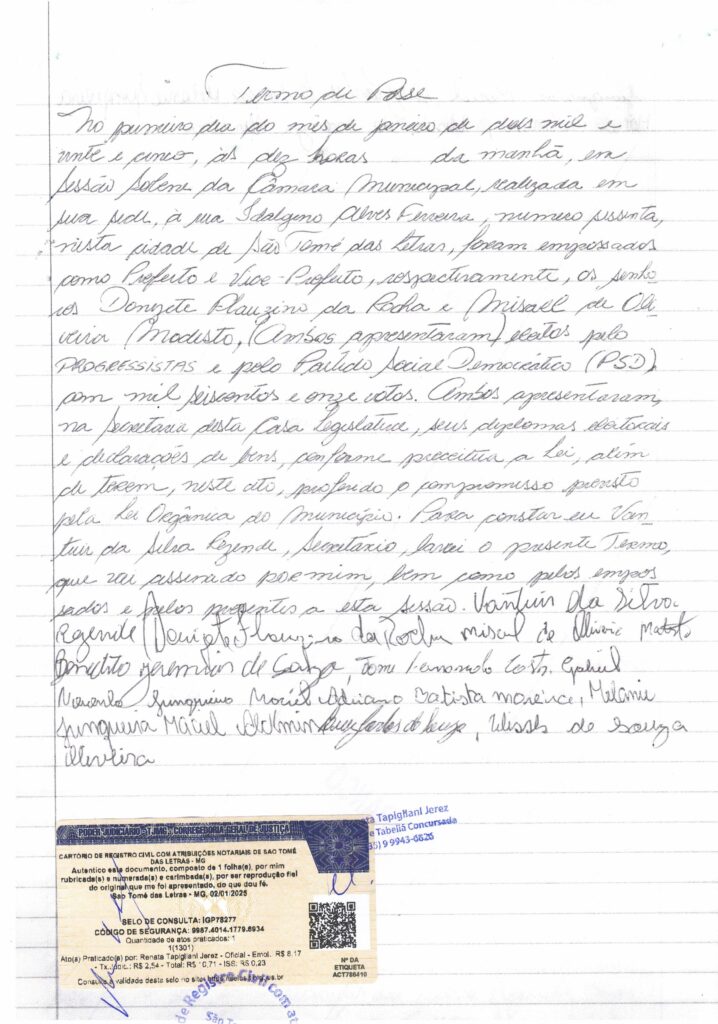 Termo de Posse
No primeiro dia do mês de janeiro de dois mil e
vinte e cinco, às dez horas da manhã, em
sessão solene da Câmara Municipal, realizada em
sua sede, à rua Idalgino Alves Ferreira, número sessenta,
nesta cidade de São Tomé das Letras, foram empossados
como Prefeito e Vice-Prefeito, respectivamente, os senho
res Donizete Flauzino da Rocha e Misael de Oli
veira Modesto, (Ambos apresentaram) eleitos pelo
PROGRESSISTAS e pelo Partido Social Democrático (PSD)
com mil seiscentos e onze votos. Ambos apresentaram,
na Secretaria desta Casa Legislativa, seus diplomas eleitorais
e declarações de bens, conforme preceitua a Lei, além
de terem, neste ato, proferido o compromisso previsto
pela Lei Orgânica do Município. Para constar eu Van
tuir da Silva Rezende, Secretário, lavrei o presente Termo,
que vai assinado por mim, bem como pelos empos
sados e pelos presentes a esta sessão. Vantuir da Silva
Rezende Donizete Flauzino da Rocha Misael de Oliveira
Benedito Jeremias de Souza, Fernando Costa Gabriel
Junqueira Maciel Adriano Batista Moreira, Melanie
Junqueira Maciel Carlos de Souza, Ulisses de Souza
Oliveira
ta Tapigliani Jerez
e Tabeliã Concursada
35) 9 9943-6826
PODER JUDICIÁRIO - TJMG - CORREGEDORIA GERAL DE JUSTIÇA
CARTÓRIO DE REGISTRO CIVIL COM ATRIBUIÇÕES NOTARIAIS DE SAO TOMÉ
DAS LETRAS - MG
Autentico este documento, composto de 1 folha(s), por mim
rubricada(s) e numerada(s) e carimbada(s), por ser reprodução fiel
do original que me foi apresentado, do que dou fé.
Sao Tomé das Letras - MG, 02/01/2025
SELO DE CONSULTA: IGP78277
CÓDIGO DE SEGURANÇA: 9987.4014.1779.8934
Quantidade de atos praticados: 1
1(1301)
Ato(s) Praticado(s) por: Renata Tapigliani Jerez - Oficial - Emol. R$ 8,17
- Tx. Judic.: R$ 2,54 - Total: R$ 10,71 - ISS: R$ 0,23
Consulte a validade deste selo no site
Nº DA
ETIQUETA
ACT786410
de Registro Civil com at
São T